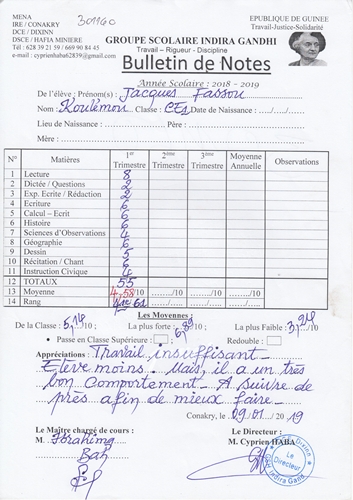 MENA
IRE / CONAKRY
DCE / DIXINN
DSCE / HAFIA MINIERE
Tél : 628 39 21 59 / 669 90 84 45
e-mail : cyprienhaba62839@gmail.com
EPUBLIQUE DE GUINEE
Travail-Justice-Solidarité
GROUPE SCOLAIRE INDIRA GANDHI
Travail – Rigueur - Discipline
Bulletin de Notes
Année Scolaire : 2018 - 2019
De l'élève : Prénom(s) : Jacques Fassou
Nom : Koulémou Classe : CE1 Date de Naissance : ..../...../.....
Lieu de Naissance : Père :
Mère :
N° Matières 1er Trimestre 2ème Trimestre 3ème Trimestre Moyenne Annuelle Observations
1 Lecture 8
2 Dictée / Questions 2
3 Exp. Ecrite / Rédaction 2
4 Ecriture 6
5 Calcul – Ecrit 6
6 Histoire 6
7 Sciences d'Observations 4
8 Géographie 6
9 Dessin 5
10 Récitation / Chant 6
11 Instruction Civique 4
12 TOTAUX 55
13 Moyenne 4,58/10 ......../10 ......../10 ......../10
14 Rang
Les Moyennes :
De la Classe : 5,14/10 ; La plus forte : 6,89/10 La plus Faible : 3,28/10
• Passe en Classe Supérieure : Redouble :
Appréciations : Travail insuffisant -
Elève moins. Mais, il a un très
bon comportement - A suivre de
près afin de mieux faire.
Conakry, le 09/01/2019
Le Maître chargé de cours :
M. Ibrahima
Bah
Le Directeur :
M. Cyprien HABA
Le Directeur